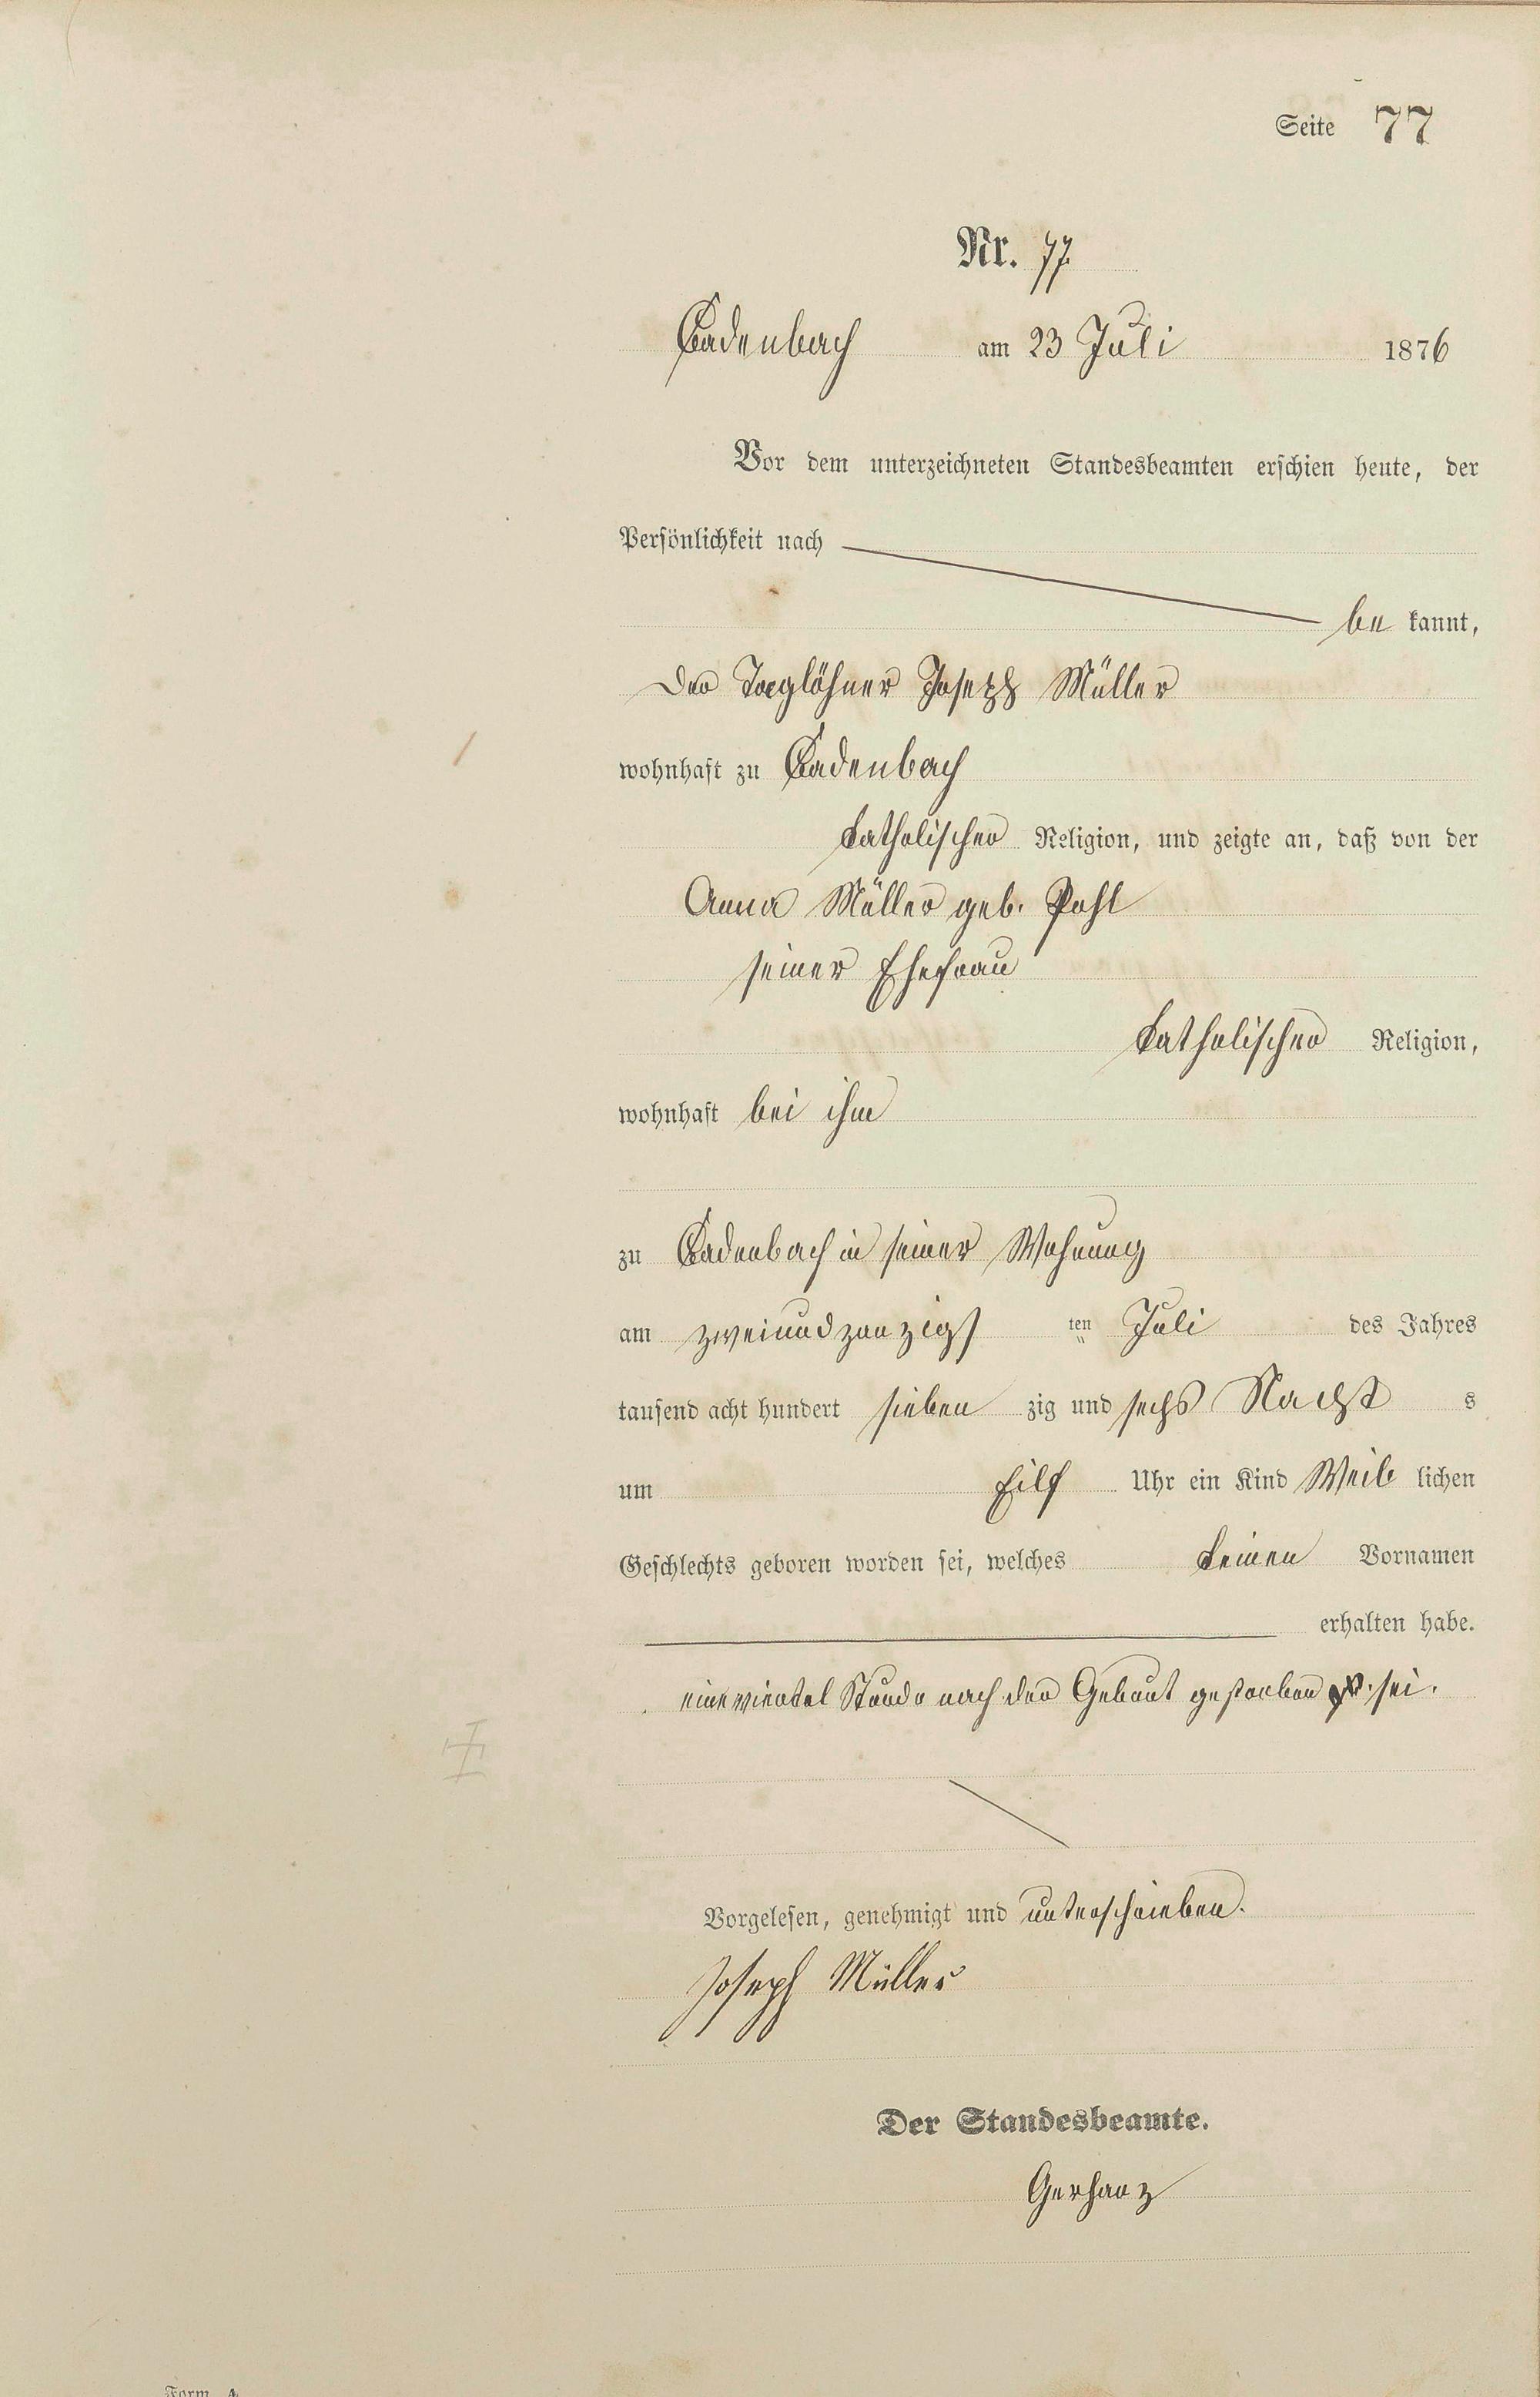 Seite 77
Nr. 77
Cadenbach am 23 Juli 1876
Vor dem unterzeichneten Standesbeamten erschien heute, der
Persönlichkeit nach
be kannt,
der Taglöhner Joseph Müller
wohnhaft zu Cadenbach
katholischer Religion, und zeigte an, daß von der
Anna Müller geb. Pohl
seiner Ehefrau
katholischer Religion,
wohnhaft bei ihm
zu Cadenbach in seiner Wohnung
am zweiundzanzigs ten Juli des Jahres
tausend acht hundert sieben zig und sechs Nachts
um Eilf Uhr ein Kind Weib lichen
Geschlechts geboren worden sei, welches keinen Vornamen
erhalten habe.
eine viertel Stunde nach der Geburt gestorben sei.
Vorgelesen, genehmigt und unterschrieben.
Joseph Müller
Der Standesbeamte.
Gerhanz
Form. A.